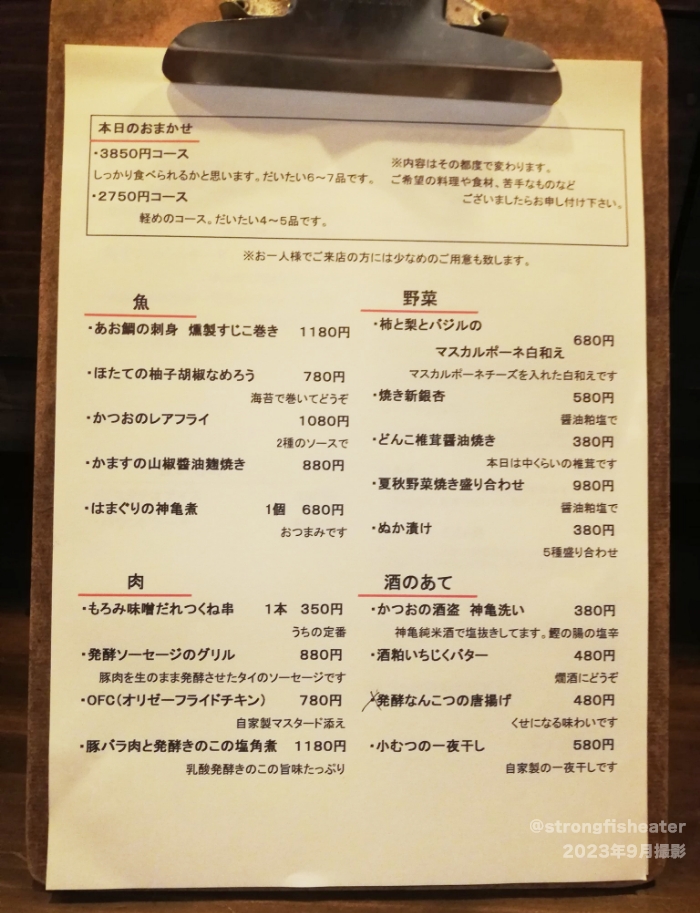 本日のおまかせ
・3850円コース
しっかり食べられるかと思います。だいたい6～7品です。
・2750円コース
軽めのコース。だいたい4～5品です。
※内容はその都度で変わります。
ご希望の料理や食材、苦手なものなど
ございましたらお申し付け下さい。
※お一人様でご来店の方には少なめのご用意も致します。
魚
・あお鯛の刺身 燻製すじこ巻き 1180円
・ほたての柚子胡椒なめろう 780円
海苔で巻いてどうぞ
・かつおのレアフライ 1080円
2種のソースで
・かますの山椒醬油麹焼き 880円
・はまぐりの神亀煮 1個 680円
おつまみです
野菜
・柿と梨とバジルの
マスカルポーネ白和え 680円
マスカルポーネチーズを入れた白和えです
・焼き新銀杏 580円
醤油粕塩で
・どんこ椎茸醤油焼き 380円
本日は中くらいの椎茸です
・夏秋野菜焼き盛り合わせ 980円
醤油粕塩で
・ぬか漬け 380円
5種盛り合わせ
肉
・もろみ味噌だれつくね串 1本 350円
うちの定番
・発酵ソーセージのグリル 880円
豚肉を生のまま発酵させたタイのソーセージです
・OFC（オリゼーフライドチキン） 780円
自家製マスタード添え
・豚バラ肉と発酵きのこの塩角煮 1180円
乳酸発酵きのこの旨味たっぷり
酒のあて
・かつおの酒盗 神亀洗い 380円
神亀純米酒で塩抜きしてます。鰹の腸の塩辛
・酒粕いちじくバター 480円
燗酒にどうぞ
・発酵なんこつの唐揚げ 480円
くせになる味わいです
・小むつの一夜干し 580円
自家製の一夜干しです
@strongfisheater
2023年9月撮影